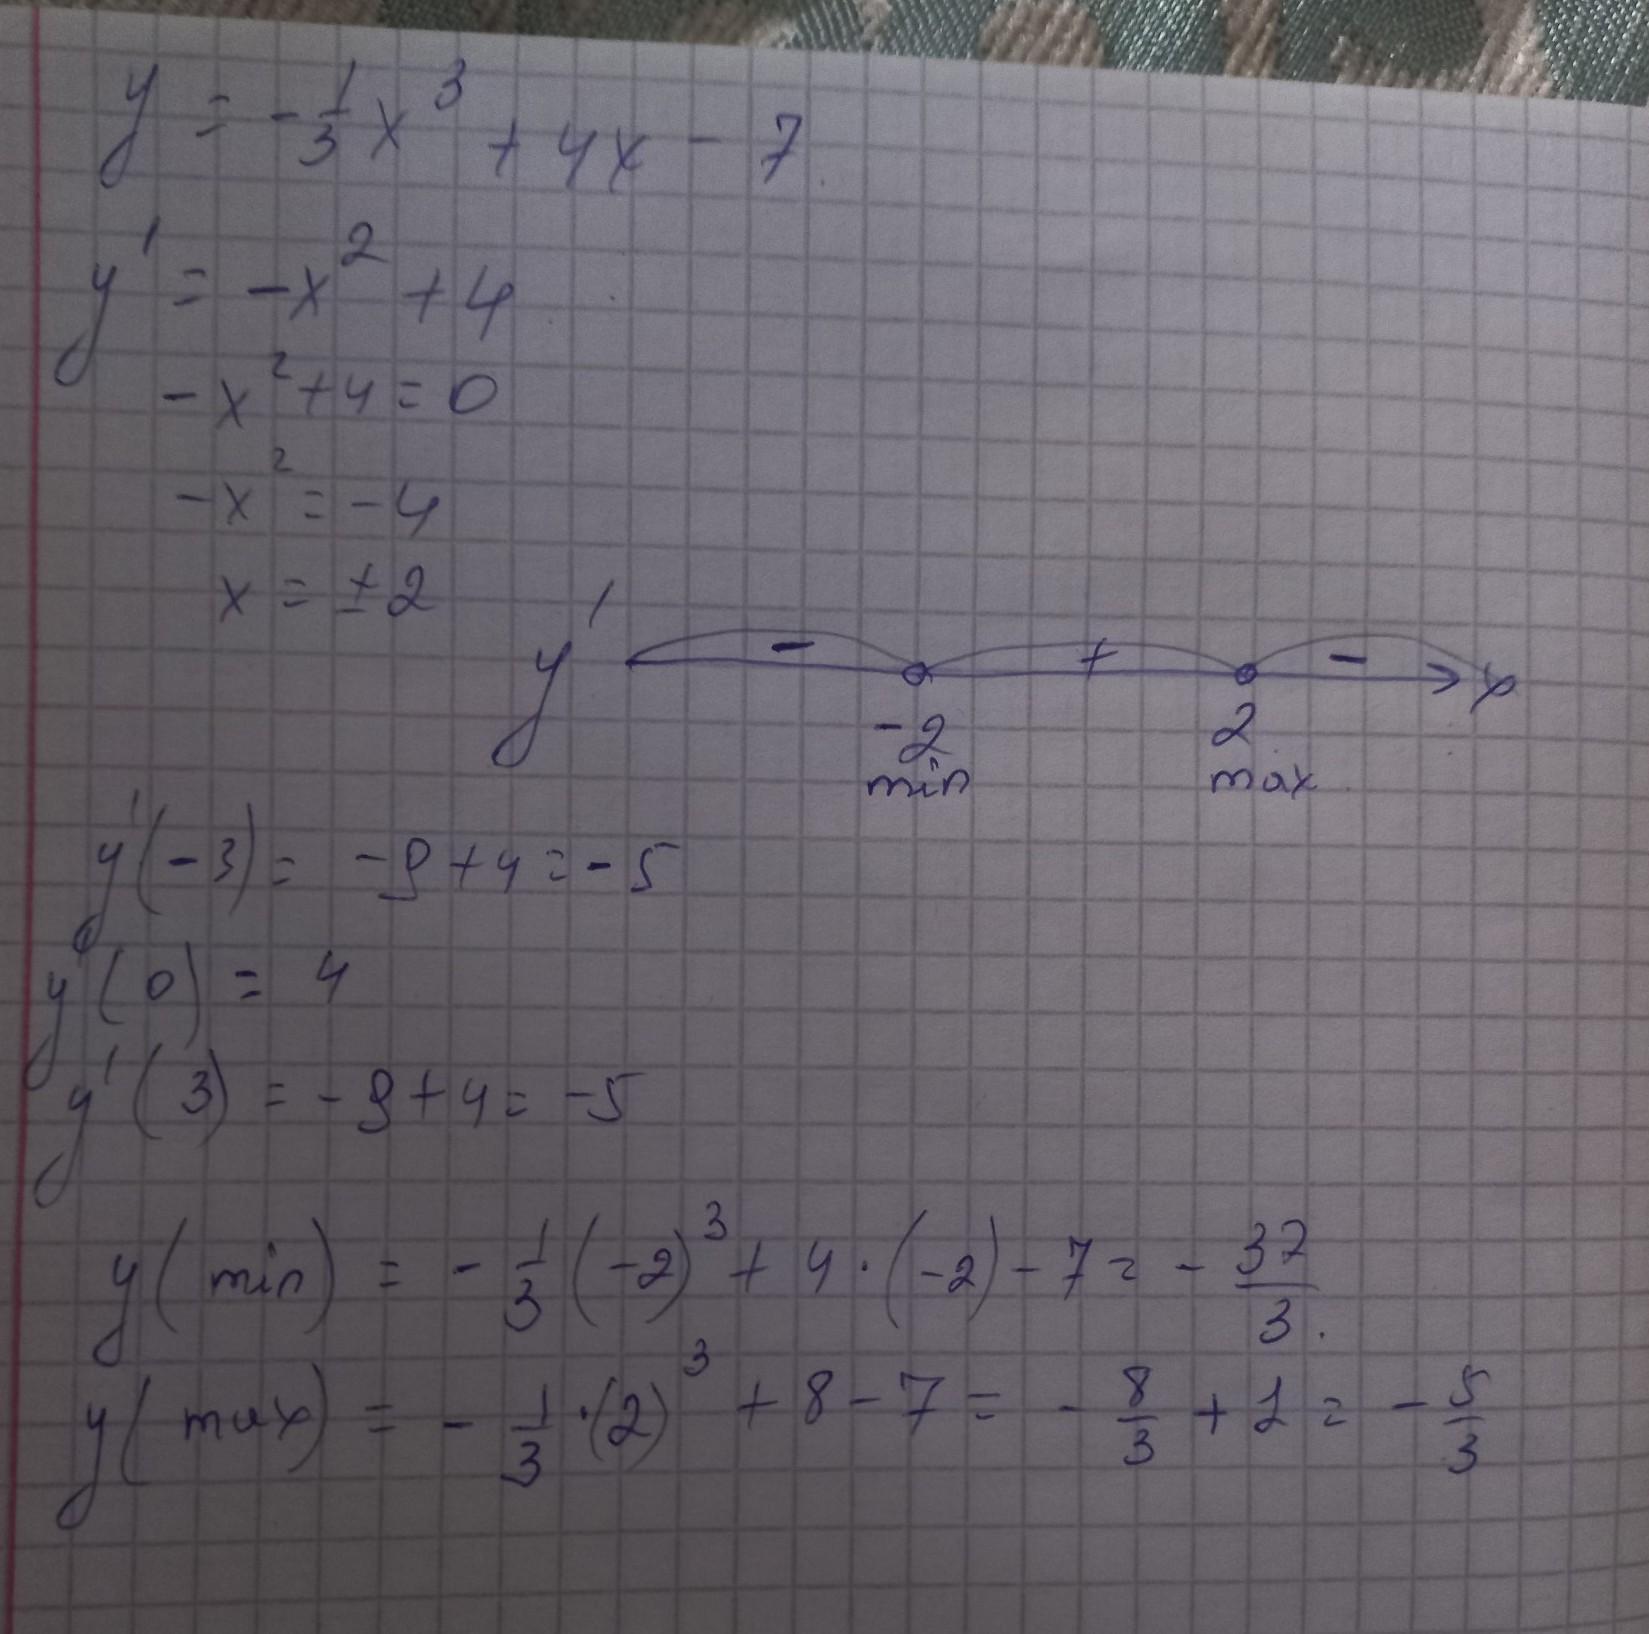 y = -1/3 x³ + 4x - 7
y' = -x² + 4
-x² + 4 = 0
-x² = -4
x = ±2
y' - + - x
-2 2
min max
y'(-3) = -9 + 4 = -5
y'(0) = 4
y'(3) = -9 + 4 = -5
y(min) = -1/3 (-2)³ + 4 · (-2) - 7 = -37/3.
y(max) = -1/3 · (2)³ + 8 - 7 = -8/3 + 1 = -5/3